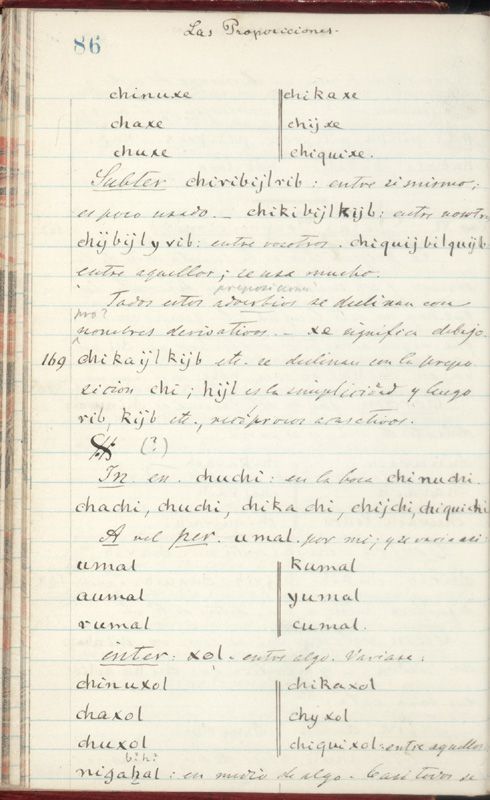 86
Las Proposiciones.
chinuxe chikaxe
chaxe chijxe
chuxe chiquixe.
Subter chiribijlrib: entre si mismo;
es poco usado. — chikibijlkijb: entre nosotr
chijbijlyvib: entre vosotros. chiquijbilquijb
entre aquellos; se usa mucho.
preposiciones
Todos estos adverbios se declinan con
pro?
nombres derivativos. — xe significa debajo.
169 chikaijlkijb etc. se declinan con la prepo
sicion chi; hijl es la simplicidad y luego
rib, kijb etc., reciprocos acusativos.
(?)
In. en. chuchi: en la boca chinuchi.
chachi, chuchi, chikachi, chijchi, chiquichi
A vel per. umal. por mi; y se varia asi:
umal kumal
aumal yumal
rumal cumal.
inter: xol. entre algo. Variase:
chinuxol chikaxol
chaxol chyxol
chuxol chiquixol: entre aquellos
nigahal: en medio de algo. Casi todos se